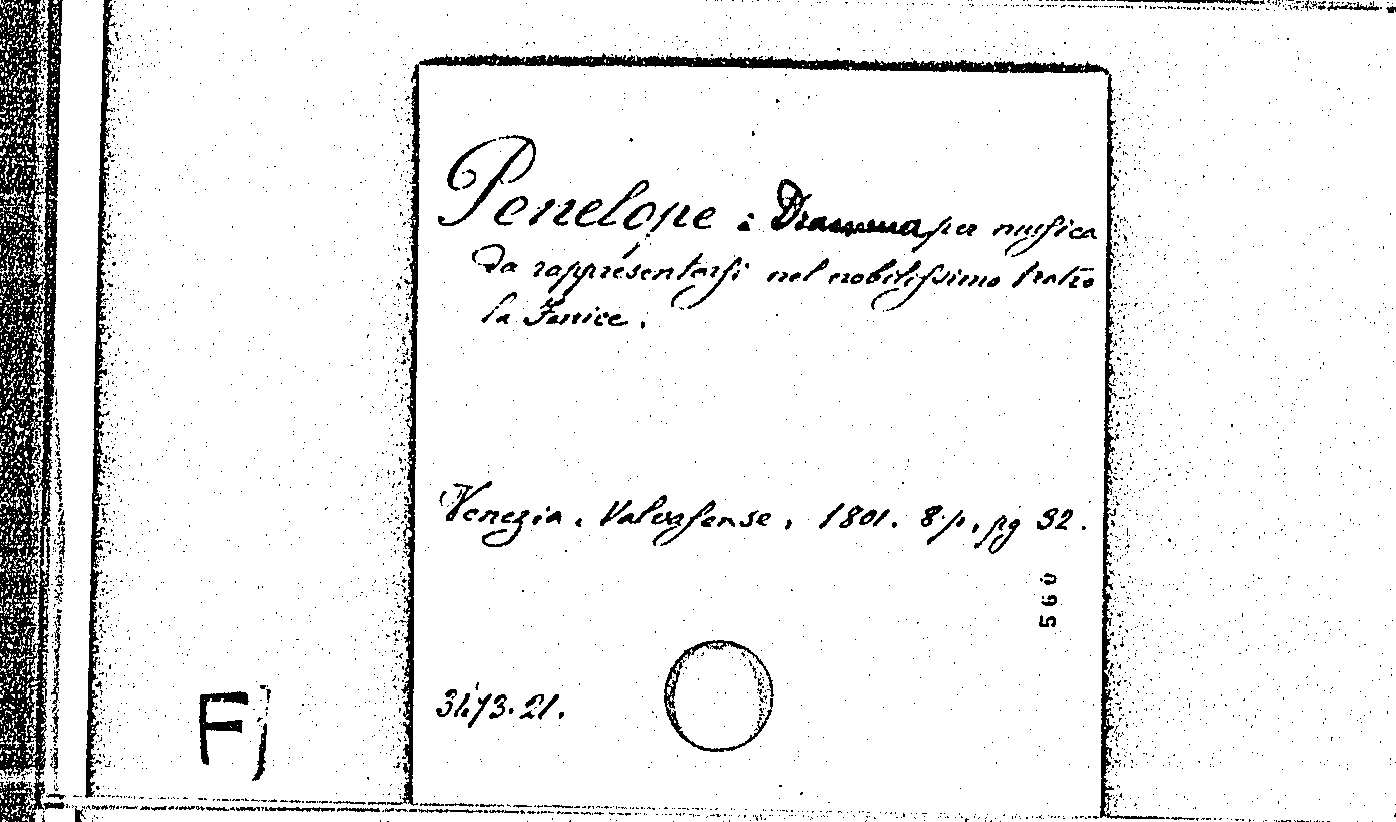 Penelope : Dramma per musica
da rappresentarsi nel nobilissimo teatro
la Fenice.
Venezia. Valvasense, 1801. 8.p, pg 32.
560
3173.21.
F)